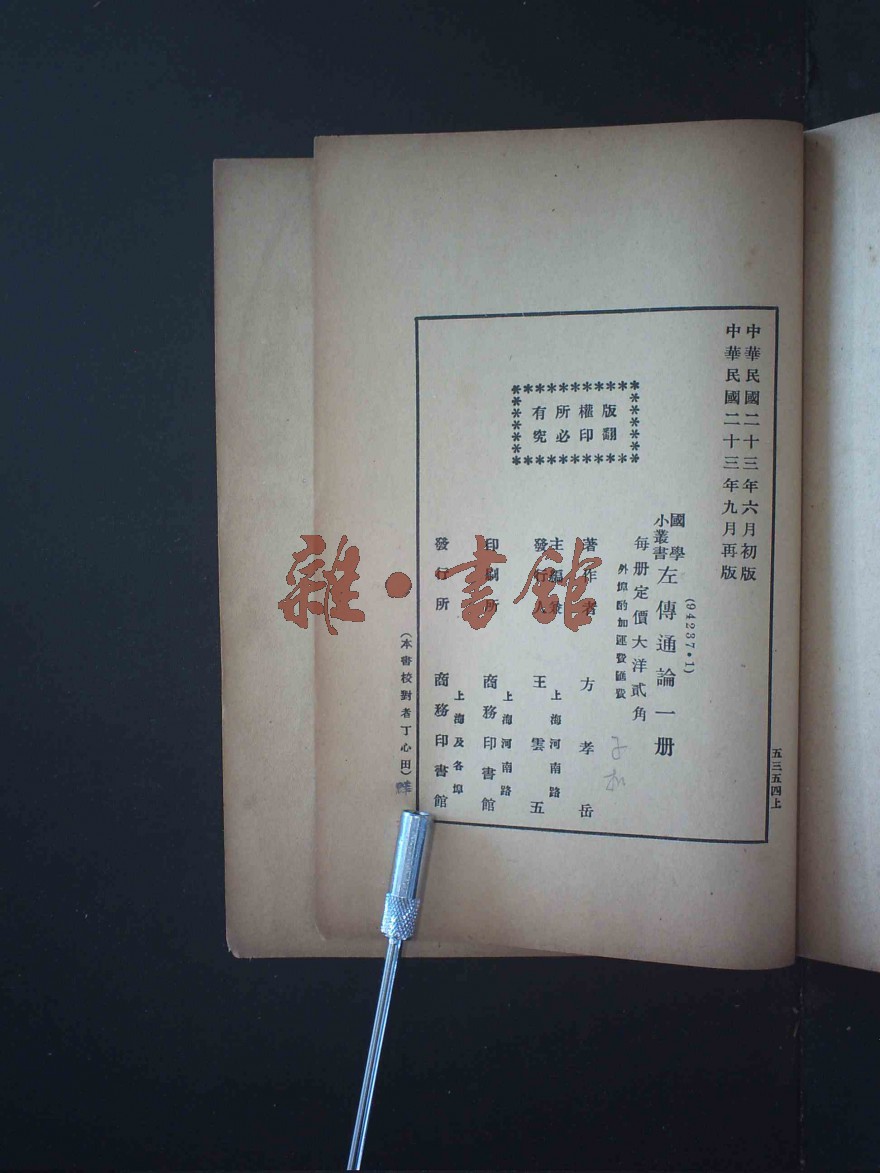 中華民國二十三年六月初版
中華民國二十三年九月再版
(94237·1)
國學小叢書 左傳通論一册
每册定價大洋貳角
外埠酌加運費匯費
版權所有
翻印必究
著作者 方孝岳
主編兼發行人 王雲五
上海河南路
印刷所 商務印書館
上海河南路
發行所 商務印書館
上海及各埠
(本書校對者丁心田)
五三五四上
雜·書館